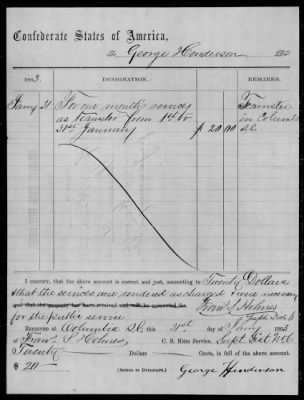 Confederate States of America,
To George Henderson Dr.
1863. DESIGNATION. REMARKS.
Jany 31 For one month's services Teamster
as Teamster from 1st to in Columbia
31st January $ 20 00 SC.
I certify, that the above account is correct and just, amounting to Twenty Dollars
& that the services were rendered as charged & were necessary
for the public service Fran. S. Holmes
Supt Dist No 6
Received at Columbia SC, this 31st day of Jany 1863
of Fran. S. Holmes C. S. Nitre Service, Supt Dist No 6
Twenty Dollars Cents, in full of the above account.
$ 20 (Signed in Duplicate.) George Henderson